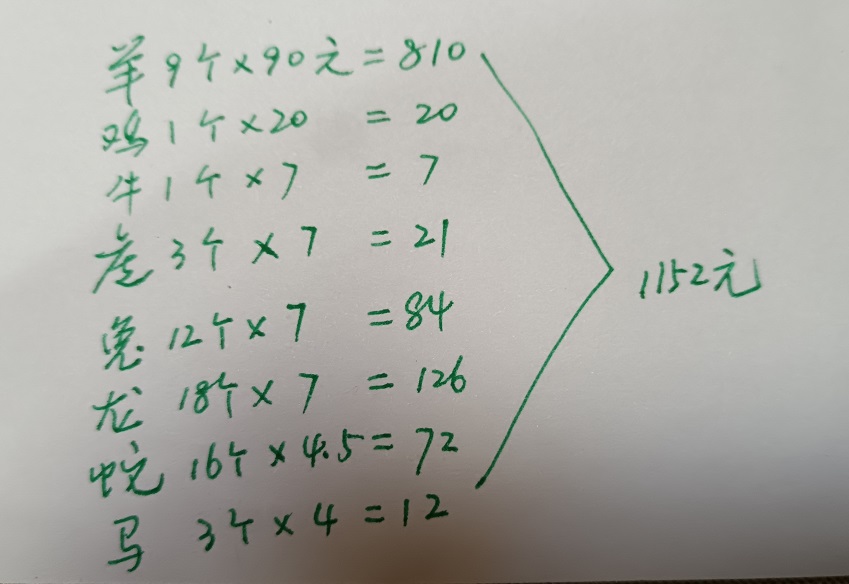 羊 9个×90元=810
鸡 1个×20 =20
牛 1个×7 =7
虎 3个×7 =21
兔 12个×7 =84
龙 18个×7 =126
蛇 16个×4.5=72
马 3个×4=12
1152元